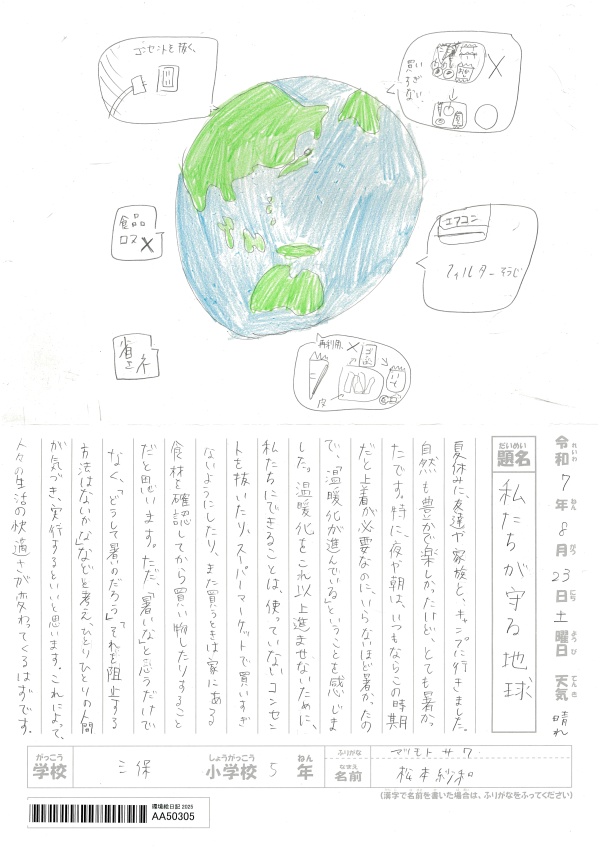 コンセントを抜く、
買いすぎない
食品
ロス
エアコン
フィルターそうじ
省
エネ
再利用、
ゴミ
皮
令和 7年 8月 23日 土曜日 天気 晴れ
れいわ ねん がつ にち ようび てんき
だいめい
題名 私たちが守る地球
夏休みに、友達や家族と、キャンプに行きました。
自然も豊かで楽しかったけど、とても暑かっ
たです。特に、夜や朝は、いつもならこの時期
だと上着が必要なのに、いらないほど暑かったの
で、「温暖化が進んでいる」ということを感じま
した。温暖化をこれ以上進ませないために、
私たちにできることは、使っていないコンセン
トを抜いたり、スーパーマーケットで買いすぎ
ないようにしたり、また買うときは家にある
食材を確認してから買い物したりすること
だと思います。ただ、「暑いな」と思うだけで
なく、「どうして暑いのだろう」「それを阻止する
方法はないかな」などと考え、ひとりひとりの人間
が気づき、実行するといいと思います。これによって、
人々の生活の快適さが変わってくるはずです。
がっこう しょうがっこう ねん
学校 三保 小学校 5 年
ふりがな マツモト サワ
なまえ
名前 松本紗和
(漢字で名前を書いた場合は、ふりがなをふってください)
環境絵日記 2025
AA50305